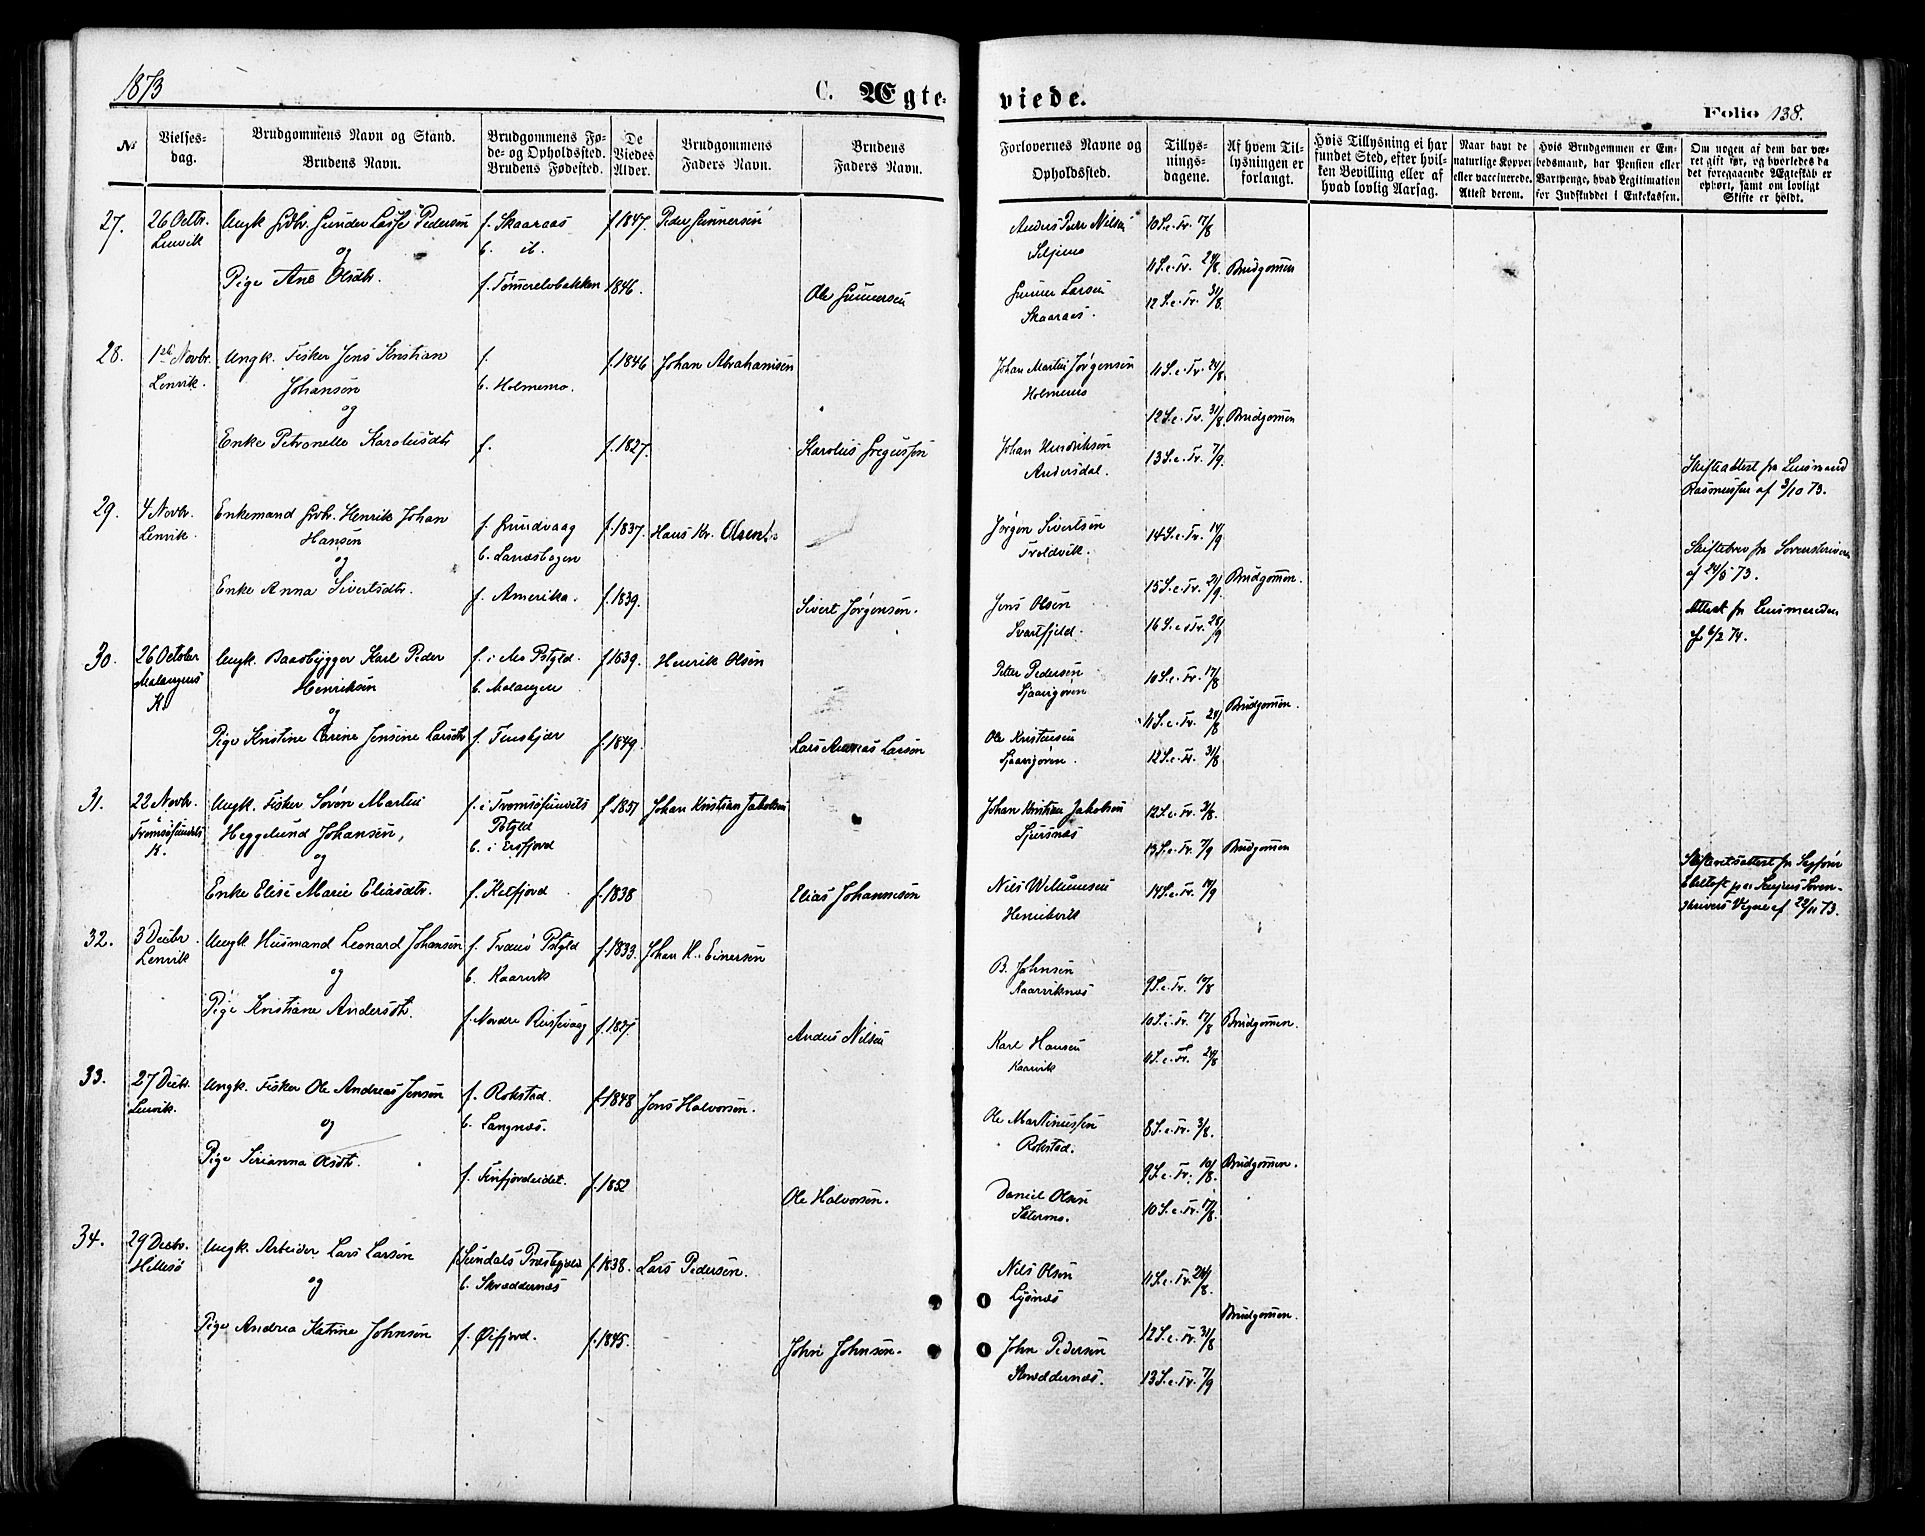 1873
C. Ægteviede.
Folio 138.
№
Vielsesdag.
Brudgommens Navn og Stand.
Brudens Navn.
Brudgommens Føde- og Opholdssted.
Brudens Fødested.
De Viedes Alder.
Brudgommens Faders Navn.
Brudens Faders Navn.
Forlovernes Navne og Opholdssted.
Tillysningsdagene.
Af hvem Tillysningen er forlangt.
Hvis Tillysning ei har fundet Sted, efter hvilken Bevilling eller af hvad lovlig Aarsag.
Naar havt de naturlige Kopper eller vaccinerede. Attest derom.
Hvis Brudgommen er Embedsmand, har Pension eller Vartpenge, hvad Legitimation for Indskuddet i Enkekassen.
Om nogen af dem har været gift før, og hvorledes da det foregaaende Ægteskab er ophørt, samt om lovligt Skifte er holdt.
27.
26 Octbr. Lenvik
Ungk. Gdbr. Gunder Lasse Pedersen
og
Pige Ane Olsdtr.
f. Skaaraas
b. it.
f. Tømerelvbakken
f. 1847.
1846.
Peder Gunnersen
Ole Gunnersen
Anders Peder Nilsen
Gunner Larsen
Skaaraas.
10 S. e. Tr. 17/8
11 S. e. Tr. 24/8.
12 S. e. Tr. 31/8
Brudgommen
28.
1ste Novbr. Lenvik.
Ungk. Fisker Jens Kristian
Johansen
og
Enke Petronelle Karolusdtr
f.
b. Holmemo.
f.
f. 1846
f. 1827.
Johan Abrahamsen
Karolus Gregussen
Johan Martin Jørgensen
Holmemo
Johan Hendriksen
Andersdal.
11 S. e. Tr. 24/8
12 S. e. Tr. 31/8
13 S. e. Tr. 7/9.
Brudgommen
Skifteattest fra Lensmand
Rasmussen af 3/10 73.
29.
4 Novbr. Lenvik.
Enkemand Gdbr. Henrik Johan
Hansen
og
Enke Anna Sivertsdtr.
f. Grundvaag
b. Lanesbogen
f. Amerika.
f. 1837.
f. 1839.
Hans Kr. Olsen
Sivert Jørgensen.
Jørgen Sivertsen
Troldvik.
Jens Olsen
Svartfjeld.
14 S. e. Tr. 14/9
15 S. e. Tr. 21/9
16 S. e. Tr. 28/9
Brudgommen.
Skiftebrev fra Sorenskriveren
af 24/5 73.
Attest fra Lensmanden
af 6/2 74.
30.
26 October
Malangens K.
Ungk. Baadbygger Karl Peder
Henriksen
og
Pige Kristine Carine Jensine Larsdtr
f. i Mo Pstgld.
b. Malangen
f. Tenskjær
f. 1839.
f. 1849.
Henrik Olsen
Lars Andreas Larsen
Peter Pedersen
Ole Kristensen
10 S. e. Tr. 17/8
11 S. e. Tr. 24/8
12 S. e. Tr. 31/8
Brudgommen.
31.
22 Novbr.
Tromsøsundets K.
Ungk. Fisker Søren Martin
Heggelund Johansen,
og
Enke Elise Marie Eliasdtr.
f. i Tromsøsundets
Pstgld
b. i Ersfjord
f. Ketfjord
f. 1851
f. 1838
Johan Kristian Jakobsen
Elias Johannesen
Johan Kristian Jakobsen
Sjursnæs
Nils Willumsen
12 S. e. Tr. 31/8.
13 S. e. Tr. 7/9
14 S. e. Tr. 14/9
Brudgommen
Skifteretsattest fra
Ebeltoft paa Sorenskrivers Vegne af 22/11 73.
32.
3 Decbr Lenvik
Ungk Husmand Leonard Johansen
og
Pige Kristiane Andersdtr.
f. Tranø Pstgld
b. Kaarvik
f. Nordre Reisevaag
f. 1833.
f. 1827
Johan H. Einersen
Anders Nilsen
B. Johnsen
Kaarviknæs
Karl Hansen
Kaarvik
9 S. e. Tr. 10/8
10 S. e. Tr. 17/8
11 S. e. Tr. 24/8
Brudgommen.
33.
27 Decb. Lenvik.
Ungk. Fisker Ole Andreas Jensen
og
Pige Sirianna Olsdtr.
f. Rokstad.
b. Langnæs.
f. Finfjordeidet.
f. 1848
f. 1852
Jens Halvorsen.
Ole Halvorsen.
Ole Martinussen
Rokstad.
Daniel Olsen
8 S. e. Tr. 3/8.
9 S. e. Tr. 10/8.
10 S. e. Tr. 17/8.
Brudgommen.
34.
29 Decbr. Hillesø
Ungk. Arbeider Lars Larsen
og
Pige Andrea Katrine Johnsen
f. Sundals Præstegjeld
b. Skræddernæs
f. Øifjord.
f. 1838.
f. 1845.
Lars Pedersen.
John Johnsen.
Nils Olsen
Lysnæs
John Pedersen
Skræddernæs.
11 S. e. Tr. 24/8.
12 S. e. Tr. 31/8
13 S. e. Tr. 7/9
Brudgommen.